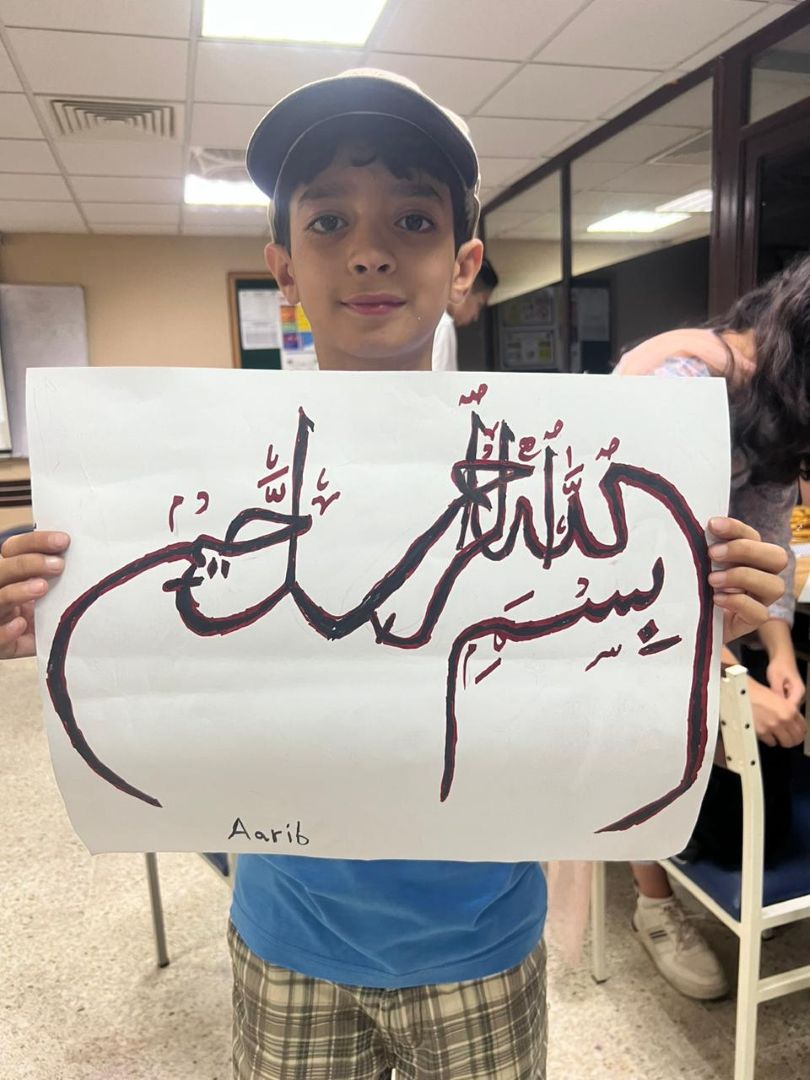 بِسْمِ اللّٰهِ الرَّحْمٰنِ الرَّحِيمِ
Aarib